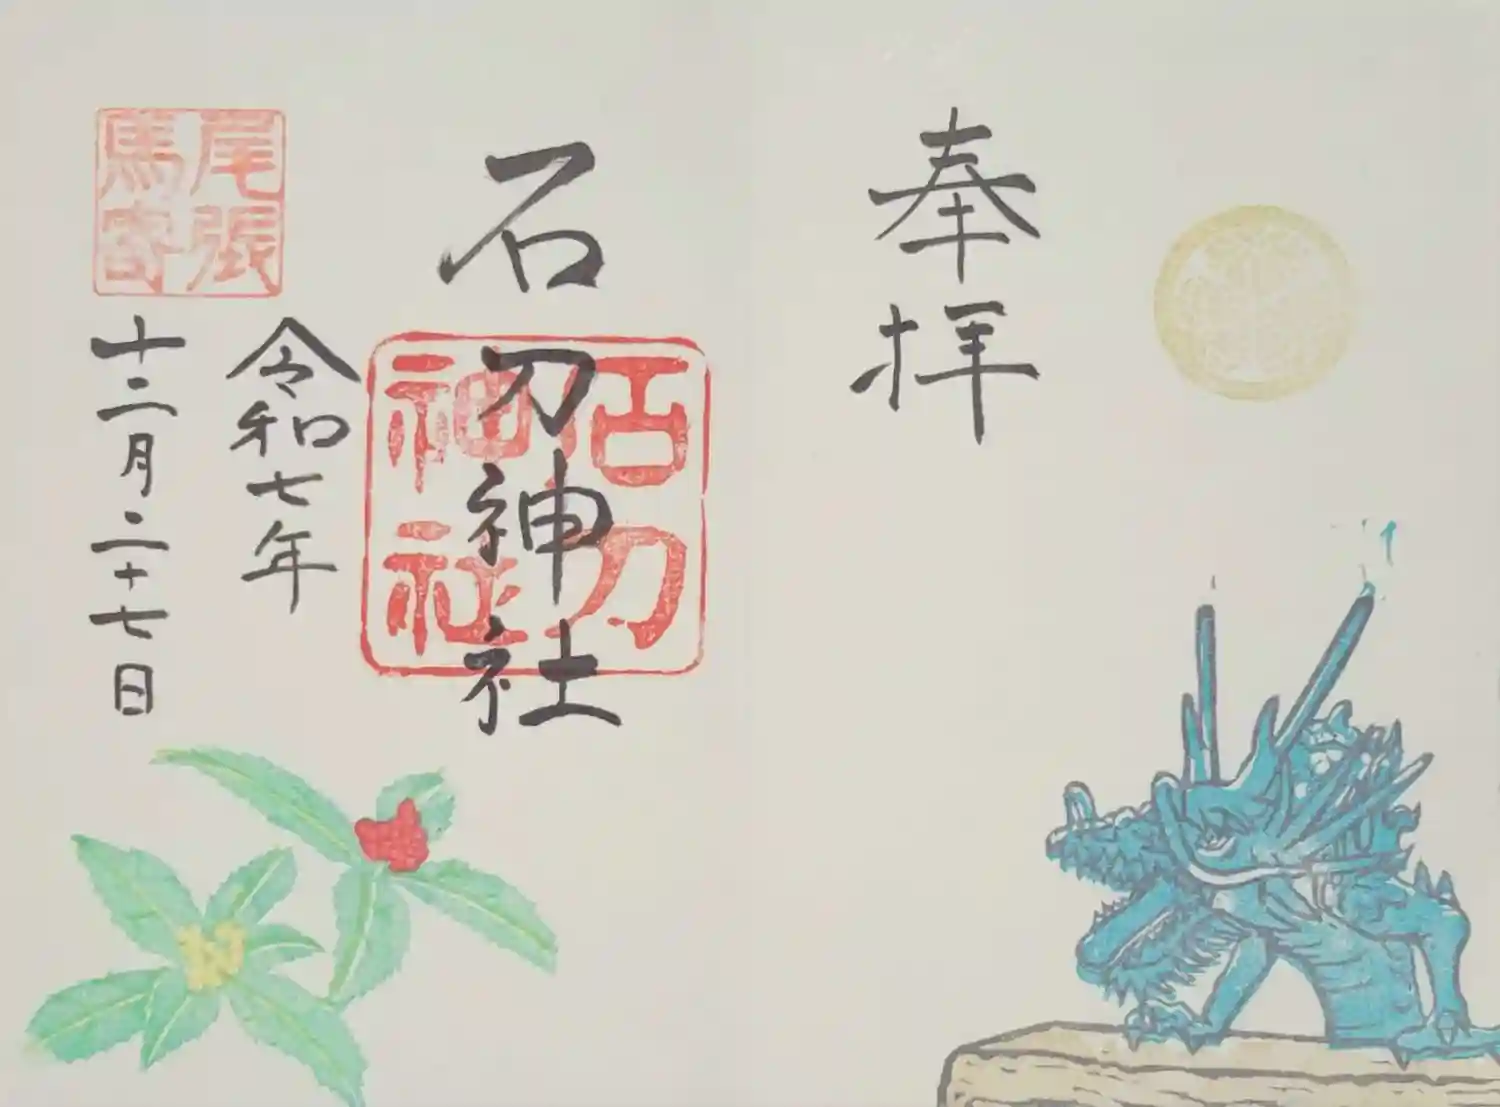 奉拝
石刀神社
石刀神社
令和七年
十二月二十七日
尾張馬寄